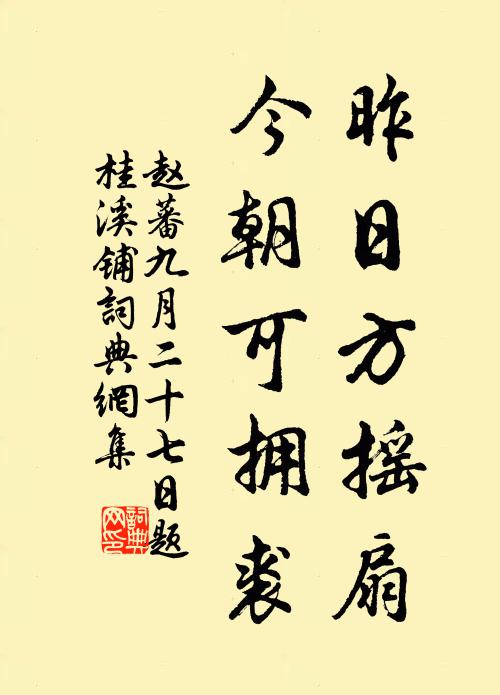 昨日方摇扇
今朝可拥裘
赵蕃九月二十七日题
桂溪铺詞典網集
詞典
网印